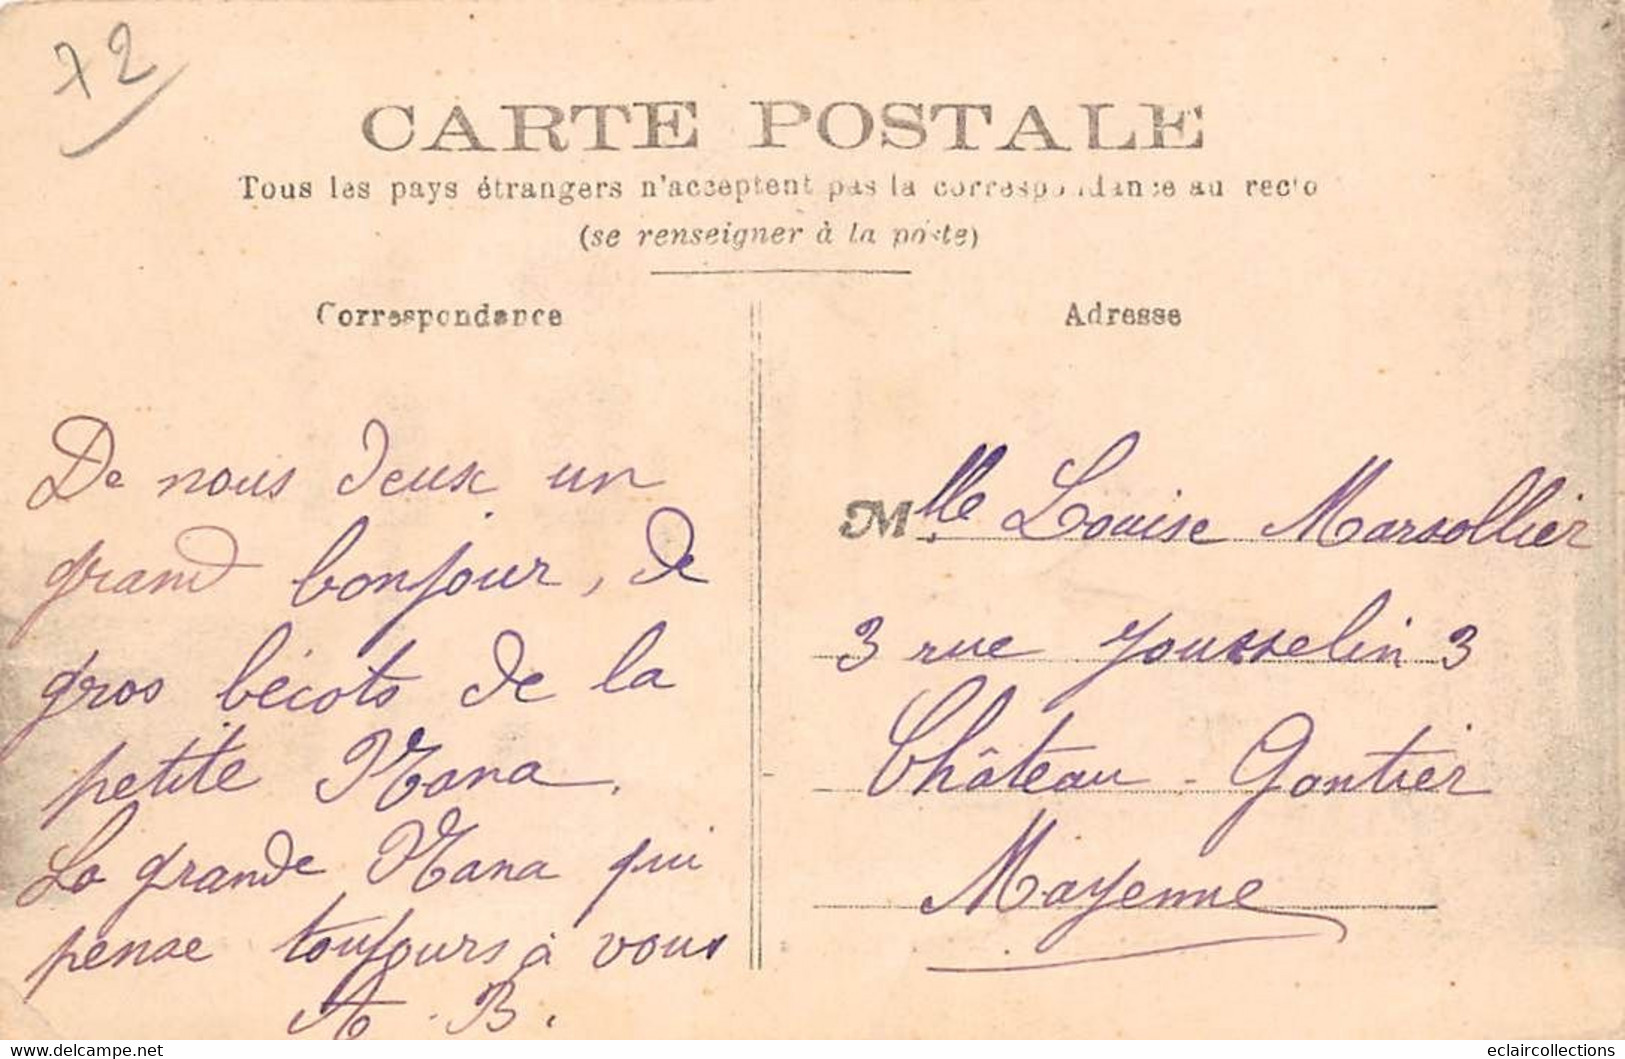 72
CARTE POSTALE
Tous les pays étrangers n'acceptent pas la correspondance au recto
(se renseigner à la poste)
Correspondance
De nous deux un
grand bonjour, de
gros bécots de la
petite Nana.
La grande Nana qui
pense toujours à vous
A. B.
Adresse
Mlle Louise Marsollier
3 rue Jousselin 3
Château-Gontier
Mayenne
delcampe.net
eclaircollections